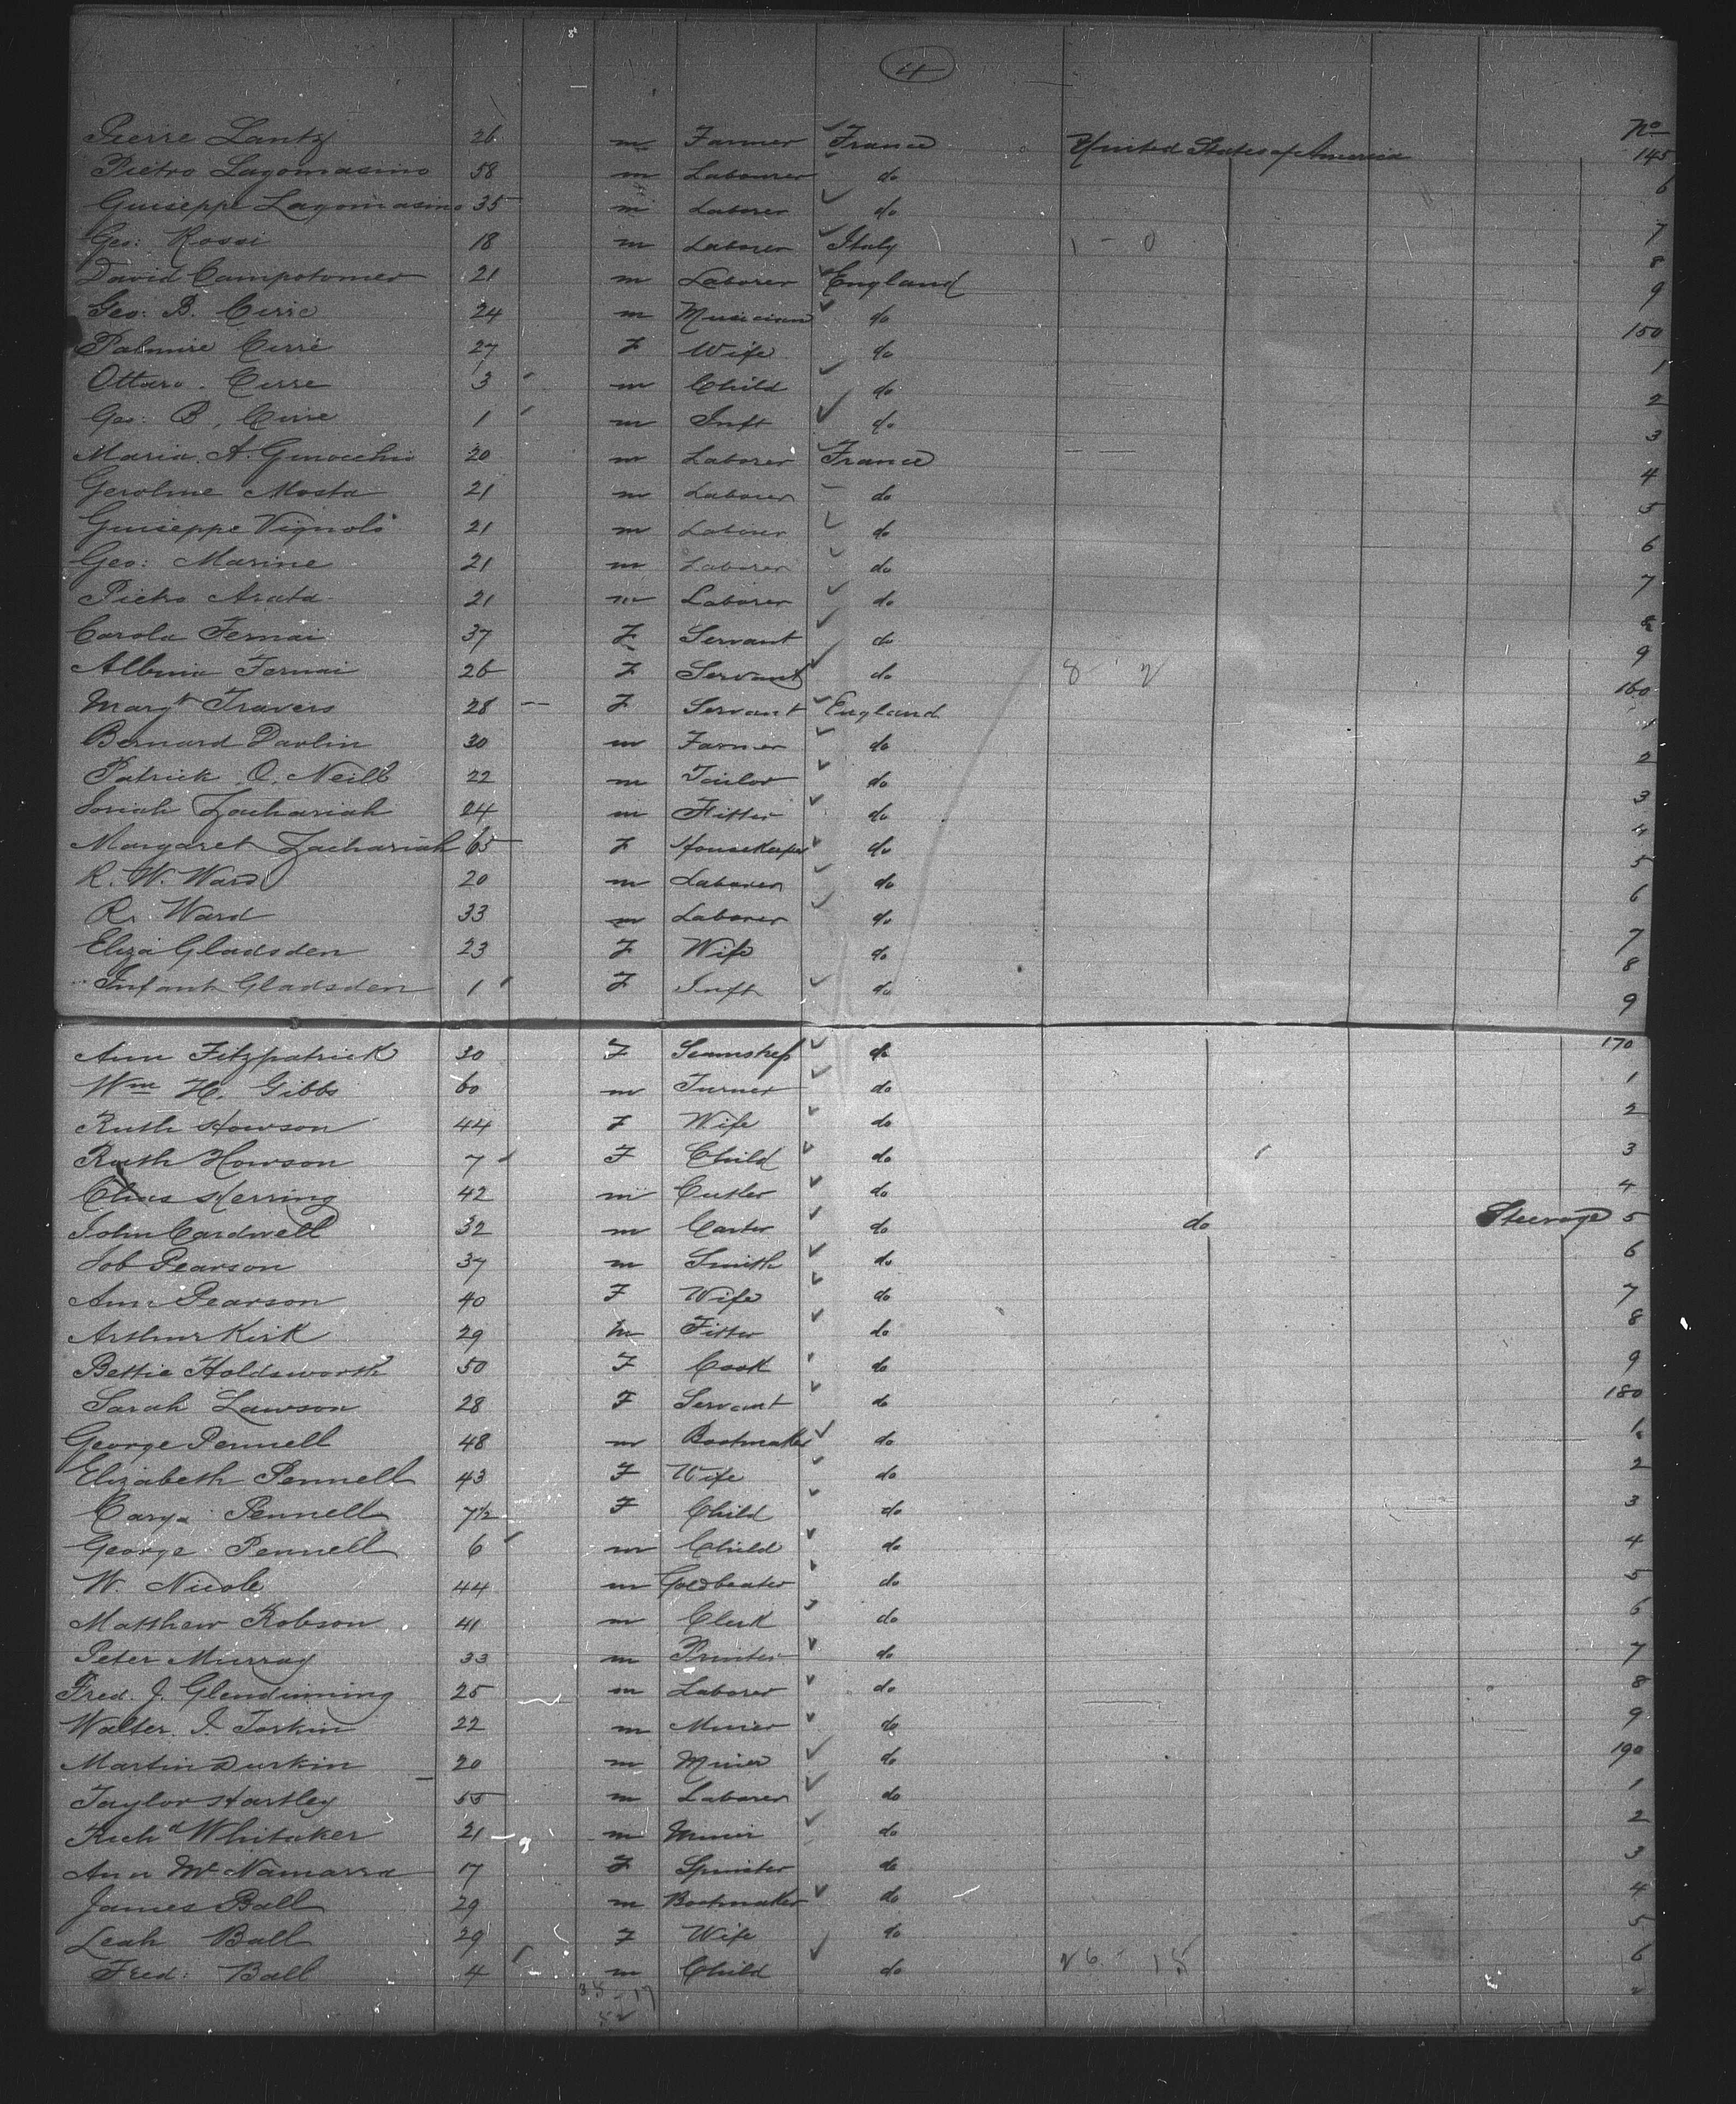 4
No
Pierre Lantz 26 m Farmer France United States of America 145
Pietro Lagomasino 58 m Labourer do 6
Guiseppe Lagomasino 35 m Laborer do 7
Geo: Rossi 18 m Laborer Italy 1 - 0 8
David Campotomer 21 m Laborer England 9
Geo: B. Cirre 24 m Musician do 150
Palmire Cirre 27 F Wife do 1
Ottavo. Cirre 3 m Child do 2
Geo: B. Cirre 1 m Inft do 3
Maria. A. Ginocchio 20 m Laborer France 4
Gerolme Mosta 21 m Laborer do 5
Guiseppe Vignoli 21 m Laborer do 6
Geo: Marine 21 m Laborer do 7
Pietro Arata 21 m Laborer do 8
Carola Fernai 37 F Servant do 9
Albina Fernai 26 F Servant do 8 2 160
Margt Travers 28 F Servant England 1
Bernard Davlin 30 m Farmer do 2
Patrick O. Neill 22 m Tailor do 3
Josiah Zachariah 24 m Fitter do 4
Margaret Zachariah 65 F Housekeeper do 5
R. W. Ward 20 m Laborer do 6
R. Ward 33 m Laborer do 7
Eliza Gladsden 23 F Wife do 8
Infant Gladsden 1 F Inft do 9
Ann Fitzpatrick 30 F Seamstress do 170
Wm H. Gibbs 60 m Turner do 1
Ruth Howson 44 F Wife do 2
Ruth Howson 7 F Child do 3
Chas Herring 42 m Cutler do 4
John Cardwell 32 m Carter do do Steerage 5
Job Pearson 37 m Smith do 6
Ann Pearson 40 F Wife do 7
Arthur Kirk 29 m Fitter do 8
Bettie Holdsworth 50 F Cook do 9
Sarah Lawson 28 F Servant do 180
George Pennell 48 m Bootmaker do 1
Elizabeth Pennell 43 F Wife do 2
Pennell 7½ F Child do 3
George Pennell 6 m Child do 4
W. Nicole 44 m Goldbeater do 5
Matthew Robson 41 m Clerk do 6
Peter Murray 33 m Printer do 7
Fred. J. Glendinning 25 m Laborer do 8
Walter. J. Torkin 22 m Miner do 9
Martin Durkin 20 m Miner do 190
Taylor Hartley 55 m Laborer do 1
Richd Whitaker 21 m Miner do 2
Ann McNamarra 17 F Spinster do 3
James Ball 29 m Bootmaker do 4
Leah Ball 29 F Wife do 5
Fred: Ball 4 m Child do 26 - 15 6
35 - 17
52